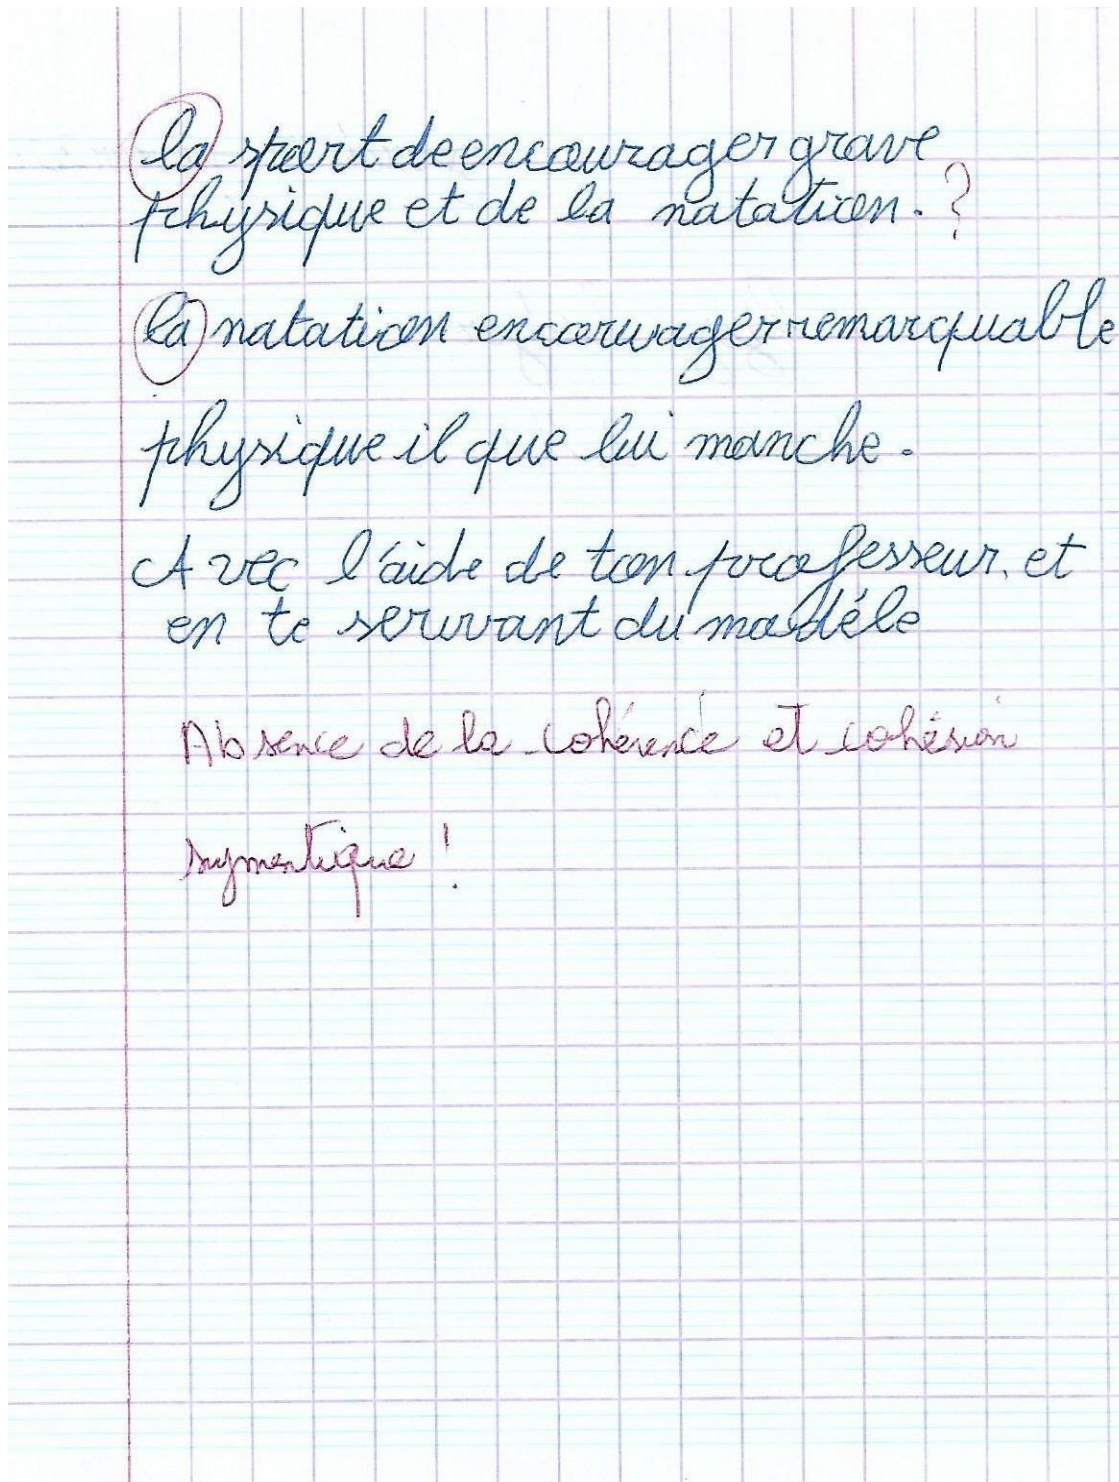 la sport de encourager grave
physique et de la natation. ?
la natation encouvager remarquable
physique il que lui manche.
Avec l'aide de ton professeur, et
en te servant du modéle
Absence de la cohérence et cohésion
symentique !